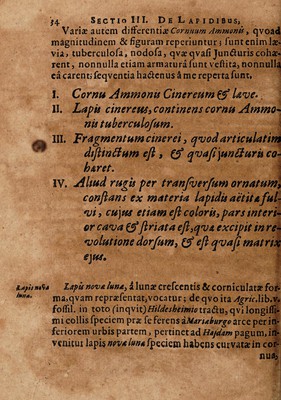 34 SECTIO III. DE LAPIDIBUS,
Variæ autem differentiæ Cornuum Ammonis, qvoad
magnitudinem & figuram reperiuntur; sunt enim læ-
via, tuberculosa, nodosa, qvæ qvasi Juncturis cohæ-
rent, nonnulla etiam armaturâ sunt vestita, nonnulla
eâ carent: seqventia hactenus â me reperta sunt.
I. Cornu Ammonis Cinereum & læve.
II. Lapis cinereus, continens cornu Ammo-
nis tuberculosum.
III. Fragmentum cinerei, qvod articulatim
distinctum est, & qvasi juncturis co-
hæret.
IV. Aliud rugis per transversum ornatum,
constans ex materia lapidis aëtitæ ful-
vi, cujus etiam est coloris, pars interi-
or cava & striata est, qvæ excipit in re-
volutione dorsum, & est qvasi matrix
ejus.
Lapis nova
luna.
Lapis novæ lunæ, â lunæ crescentis & corniculatæ for-
ma, qvam repræsentat, vocatur; de qvo ita Agric. lib. v.
fossil. in toto (inqvit) Hildesheimio tractu, qvi longissi-
mi collis speciem præ se ferens â Mariæburgo arce per in-
feriorem urbis partem, pertinet ad Hasdam pagum, in-
venitur lapis novæ lunæ speciem habens curvatæ in cor-
nua,